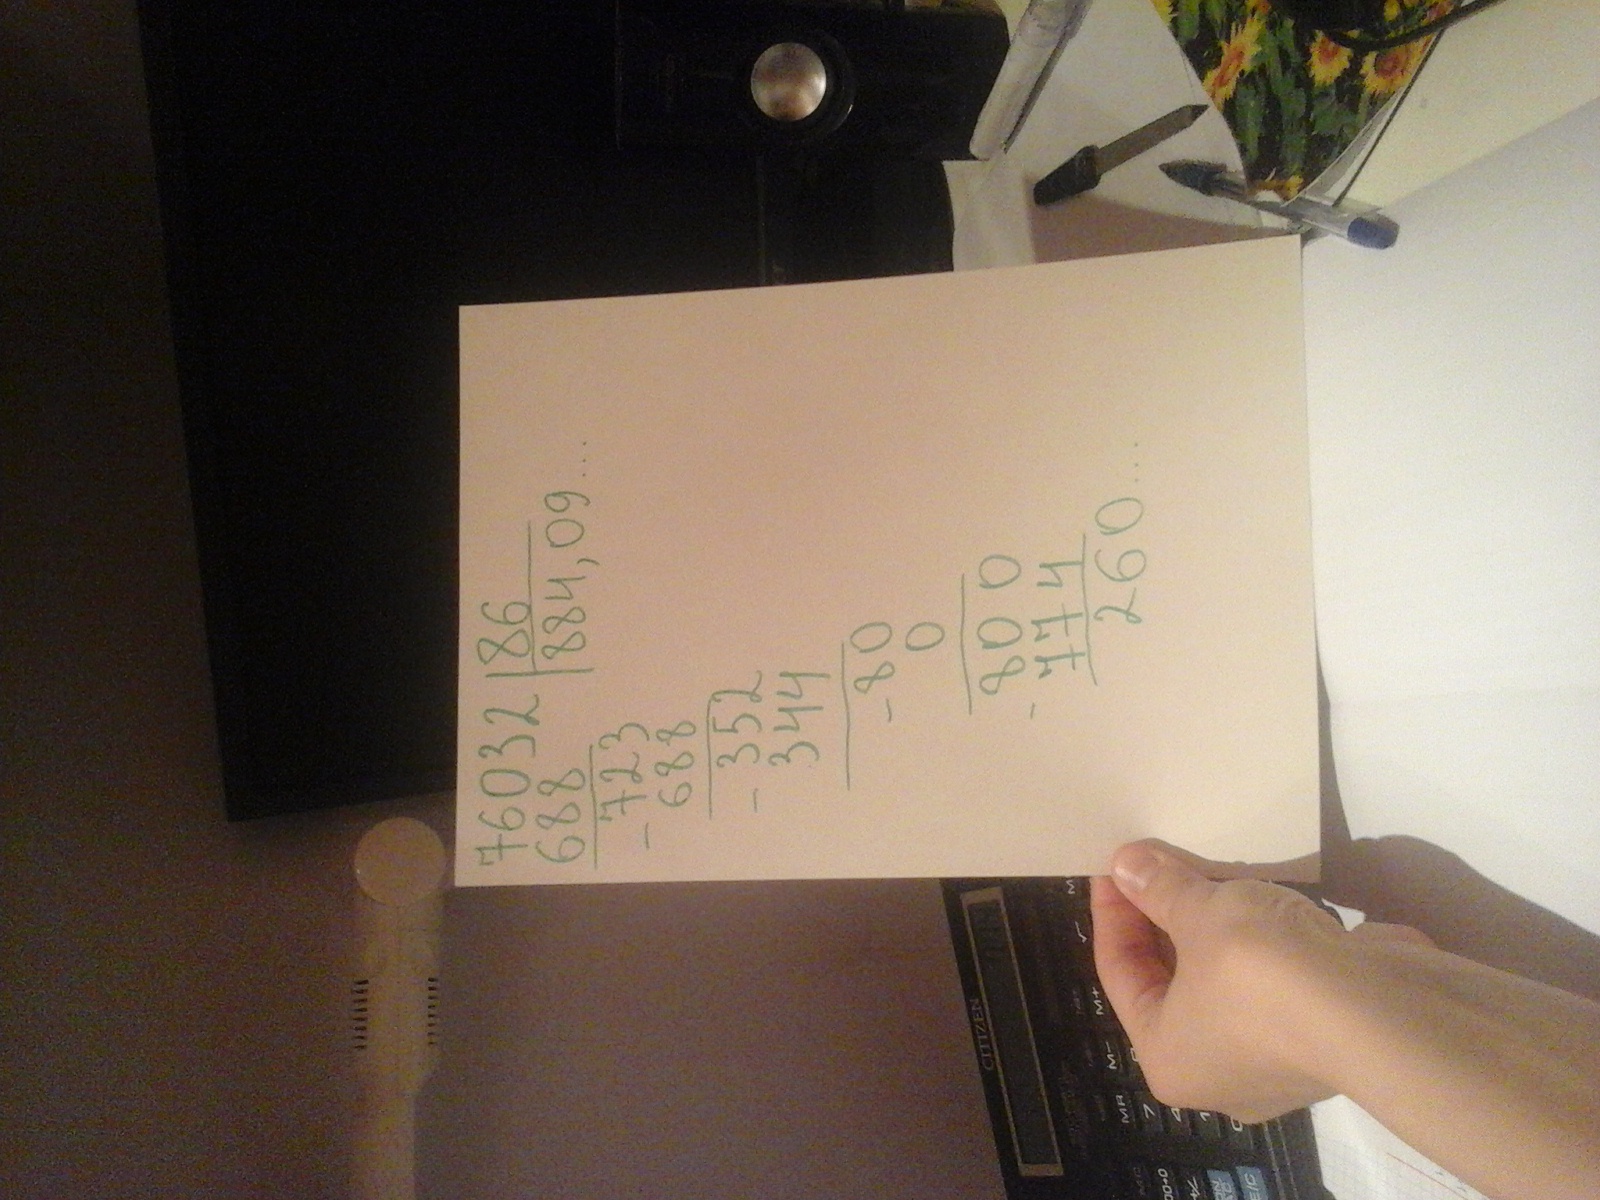 76032 86
688 884,09...
-723
-688
-352
344
-80
0
-800
774
260...
CITIZEN
MR M- M+ √
7
4
1